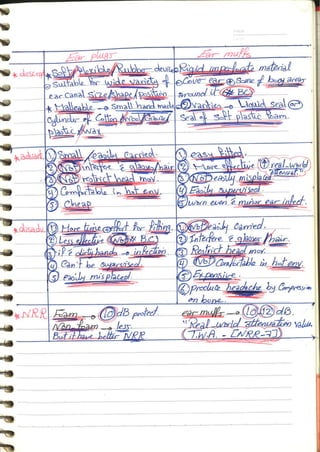 Ear plugs
Ear muffs
* descrip
* Soft/Flexible/Rubber device
o Suitable for wide variety of
ear canal Size/Shape/Position
* Malleable → Small hand made
Cylinder of Cotton
Plastic/Wax
o Rigid imperforate material
o Cove ear + Some of bony areas
around it
2 varities → Liquid seal or
Seal of Soft plastic foam.
* advant
① Small/easily Carried.
② Not interfere glasses/hair
③ Not restrict head mov.
④ Comfortable in hot env.
⑤ Cheap
① easy fitted.
② More effective + real-world
attenuat"
③ Not easily misplaced
④ Easily supervised
⑤ worn even minor ear infect.
* disadv.
① More time/effort for fitting
② Less effective (Not BC)
③ if dirty hands → infection
④ Can't be supervised
⑤ easily misplaced
① Not easily Carried.
② Interfere glasses/hair
③ Restrict head mov.
④ Not Comfortable in hot env.
⑤ Expensive.
⑥ produce headache by Compression
on bone.
* NRR
Foam → 10 dB protect
Non foam → less.
But it have better NRR
ear muffs → 10-12 dB.
"Real world attenuation value
(T.W.A - [NRR-7]